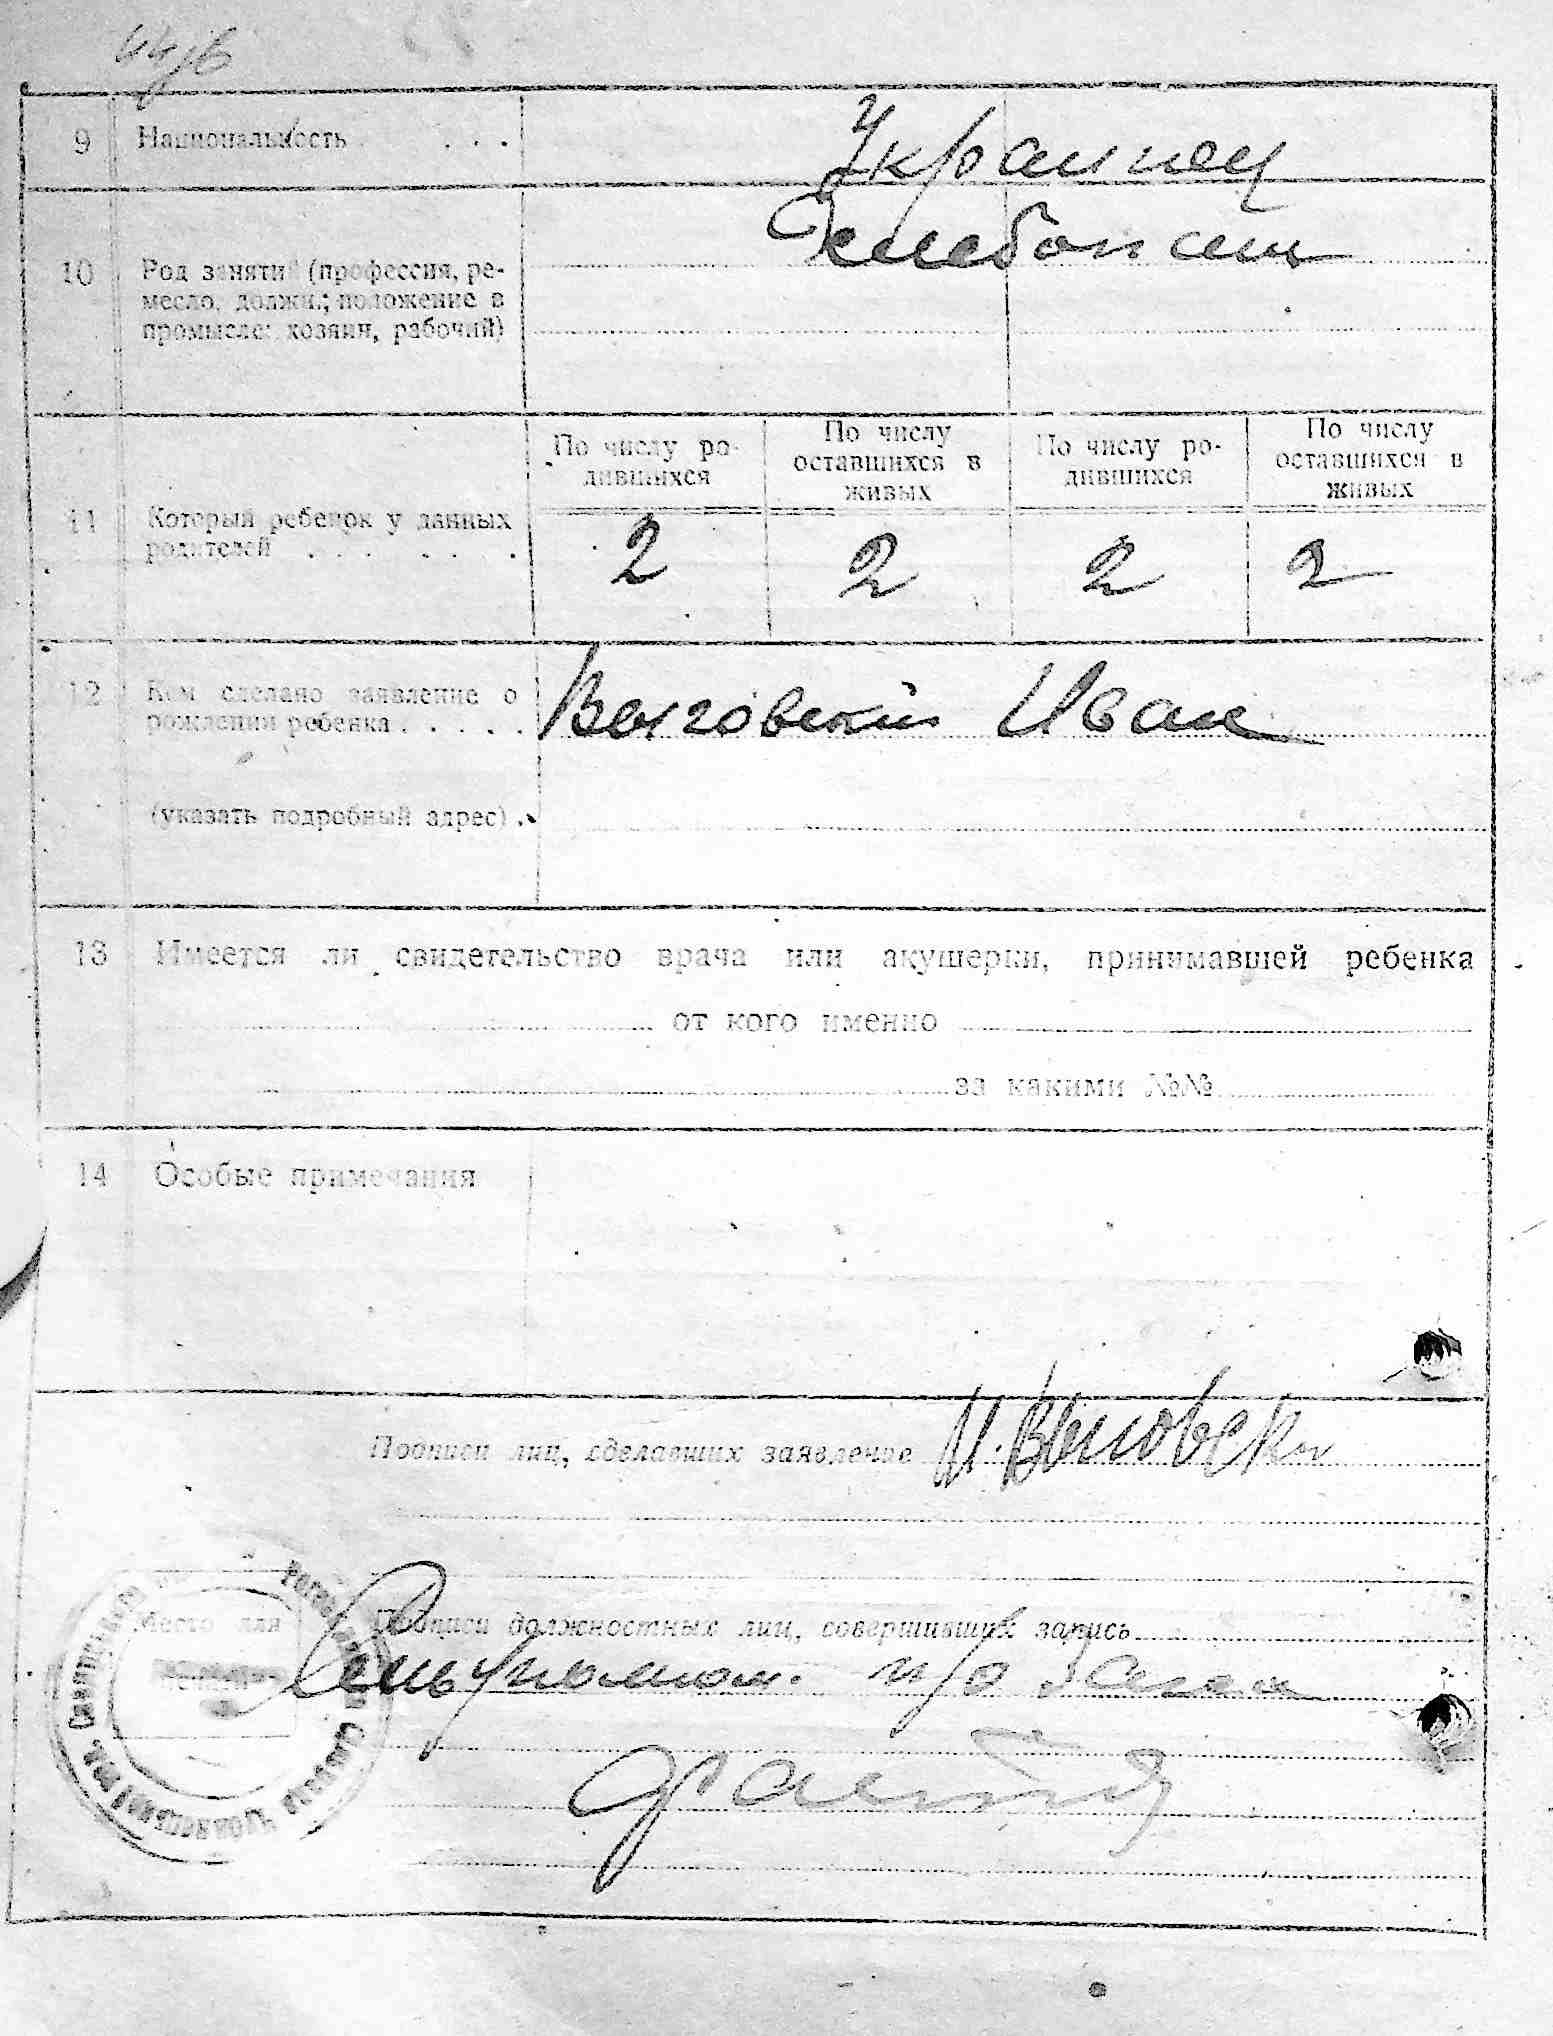 9 Национальность . . .
Украинец
10 Род занятий (профессия, ре-
месло, должн.; положение в
промысле: хозяин, рабочий)
По числу ро-
дившихся
По числу
оставшихся в
живых
По числу ро-
дившихся
По числу
оставшихся в
живых
11 Который ребенок у данных
родителей . . . . . .
2 2 2 2
12 Кем сделано заявление о
рождении ребенка . . . . .
Выговский Иван
(указать подробный адрес) .
13 Имеется ли свидетельство врача или акушерки, принимавшей ребенка
от кого именно
за какими №№
14 Особые примечания
Подписи лиц, сделавших заявление И. Выговски
Место для
печати
Подписи должностных лиц, совершивших запись